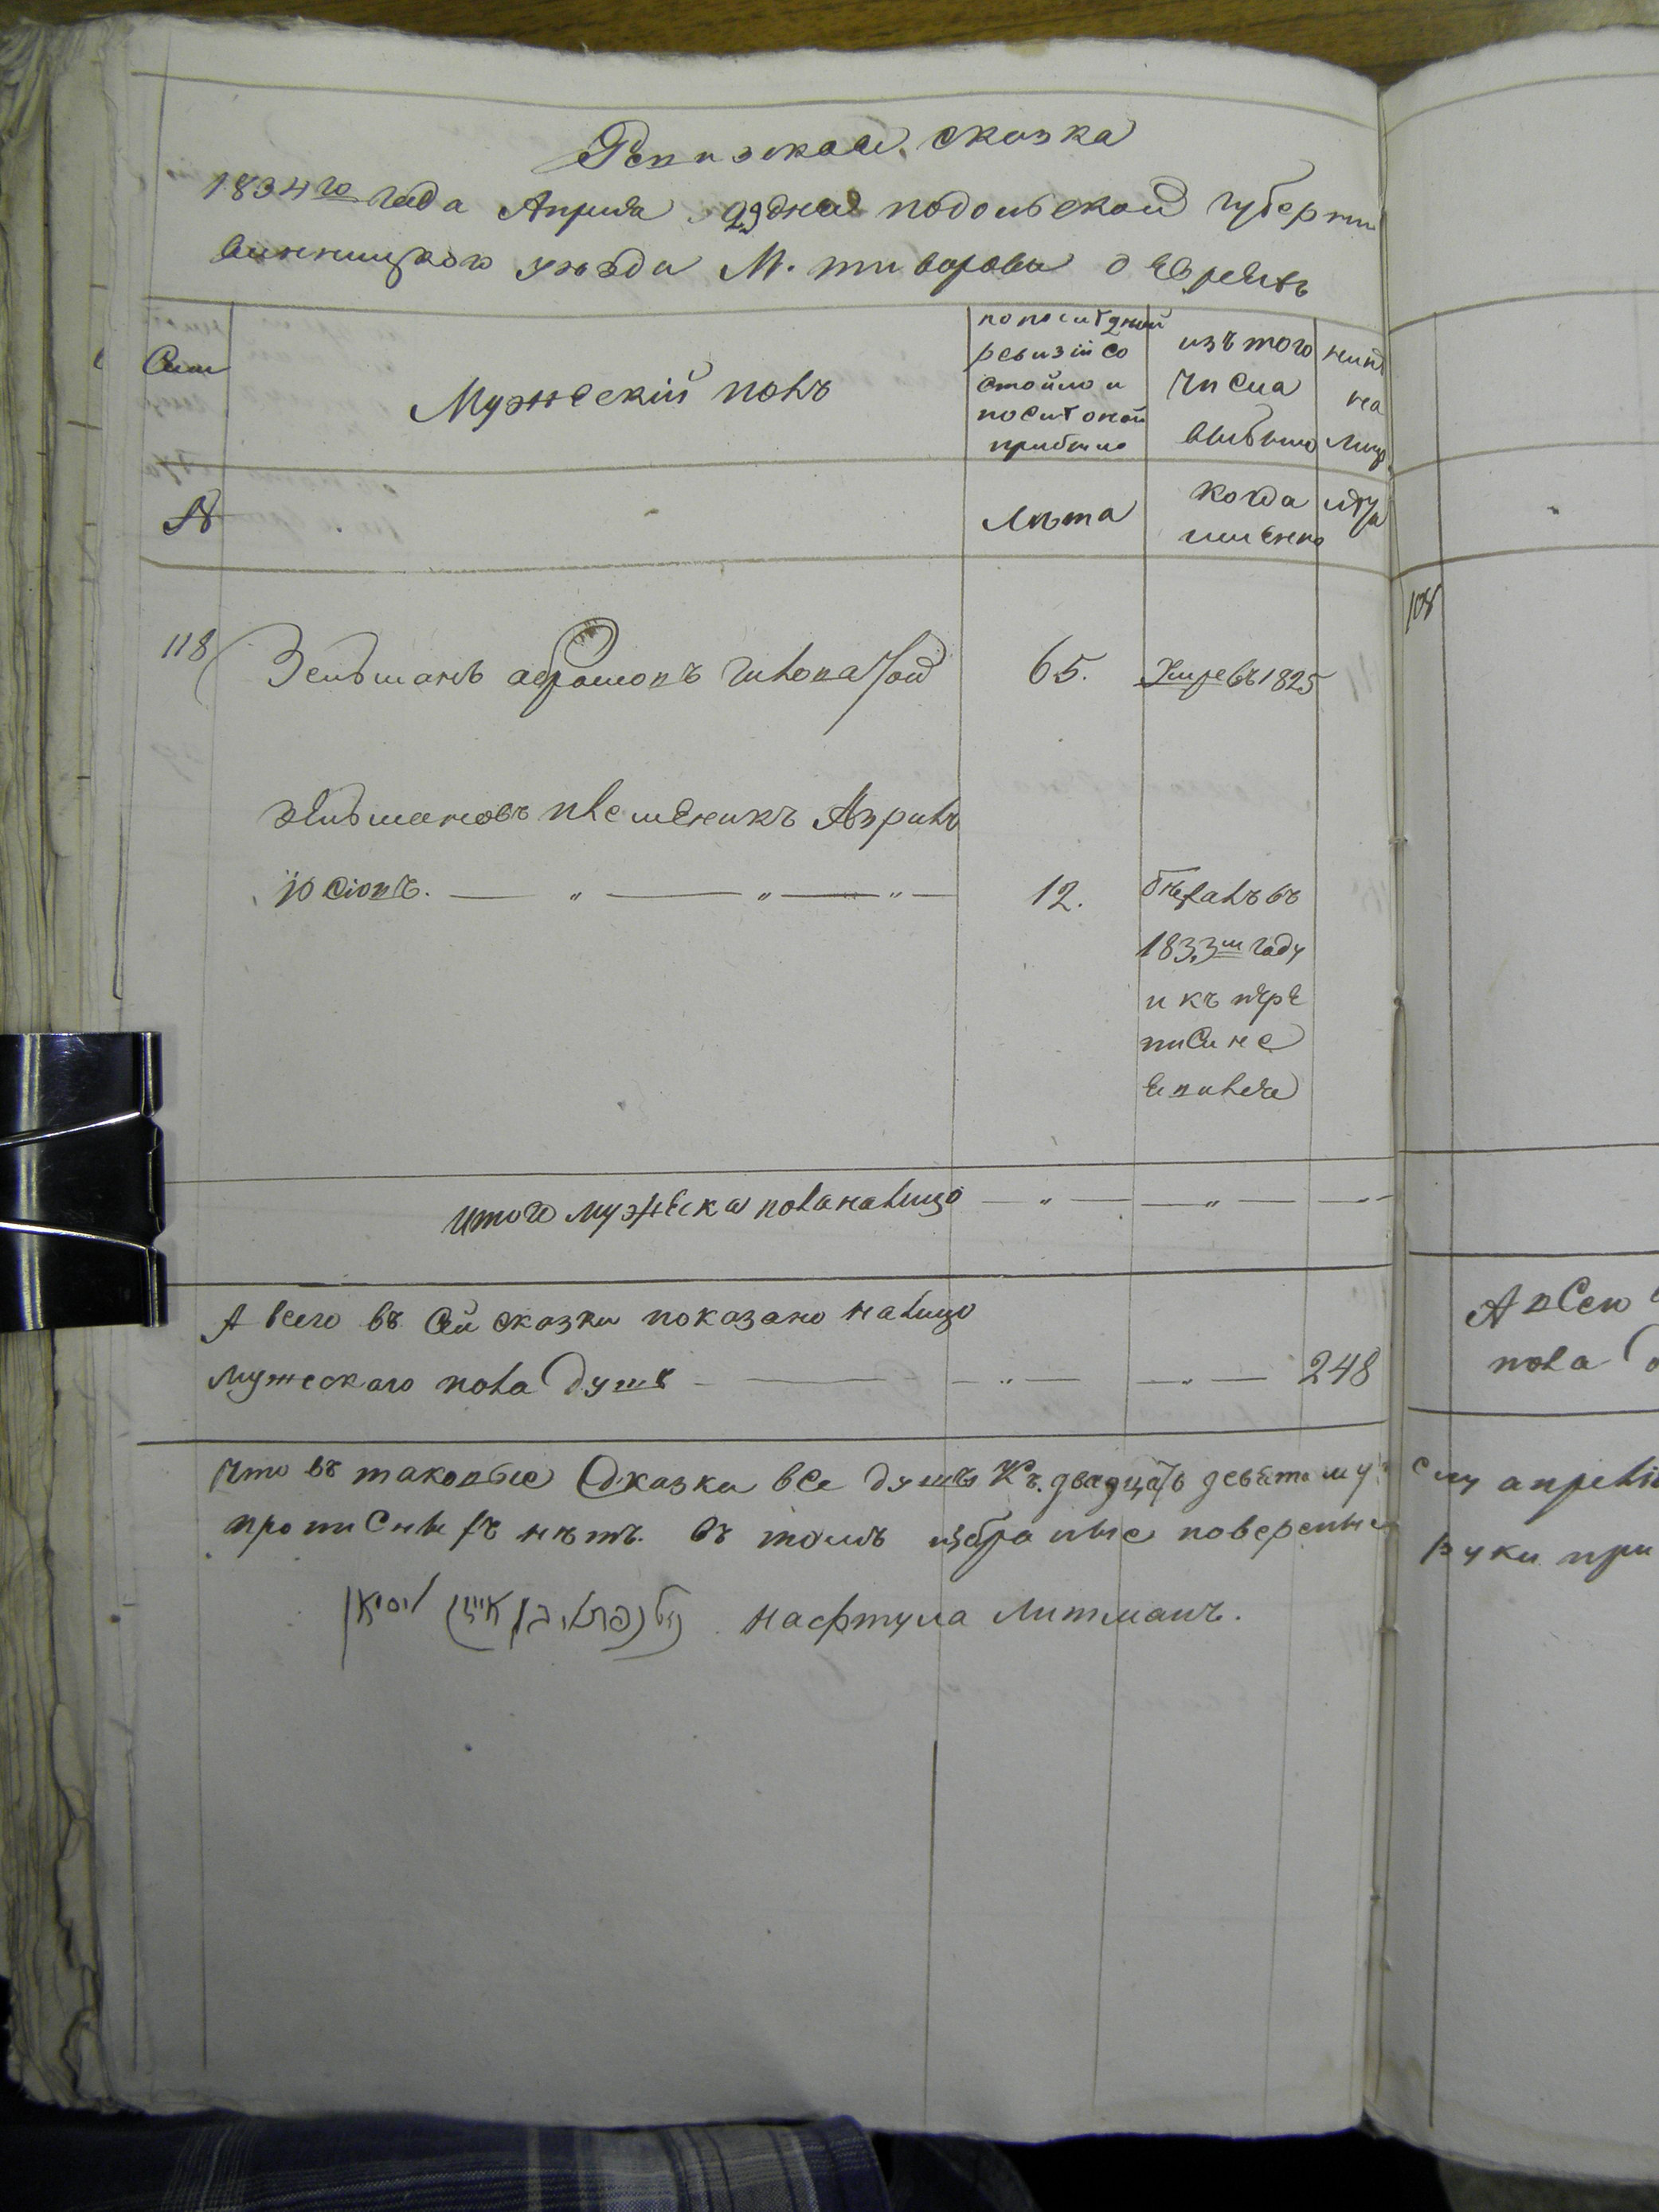 Ревизская сказка
1834го года Апреля 29 дня подольской губернии
винницкого уезда М. тиворова о Евреяхъ
Мужеский полъ
по последней
ревизии со
стойло и
после оной
прибыло
изъ того
числа
выбыло
ныне
на
лицо
№
Лета
когда
именно
лета
118
Зельманъ абрамовъ
65.
Умре въ 1825
зельмановъ племеникъ Азрилъ
иосиовъ. — " — " — " —
12.
бежалъ въ
1833м году
и къ пере
писи не
явился
итого мужеска пола налицо — " — — " — — " —
А всего въ сей сказки показано налицо
мужескаго пола душъ — — " — — " — 248
Что въ таковые сказки все души Къ двадцать девятому
прописныхъ нетъ. въ томъ избраные повереные
נפתלי בן אייזיק ליטמאן нафтула Литманъ.
108
А всего
пола
сму апреля
руки при